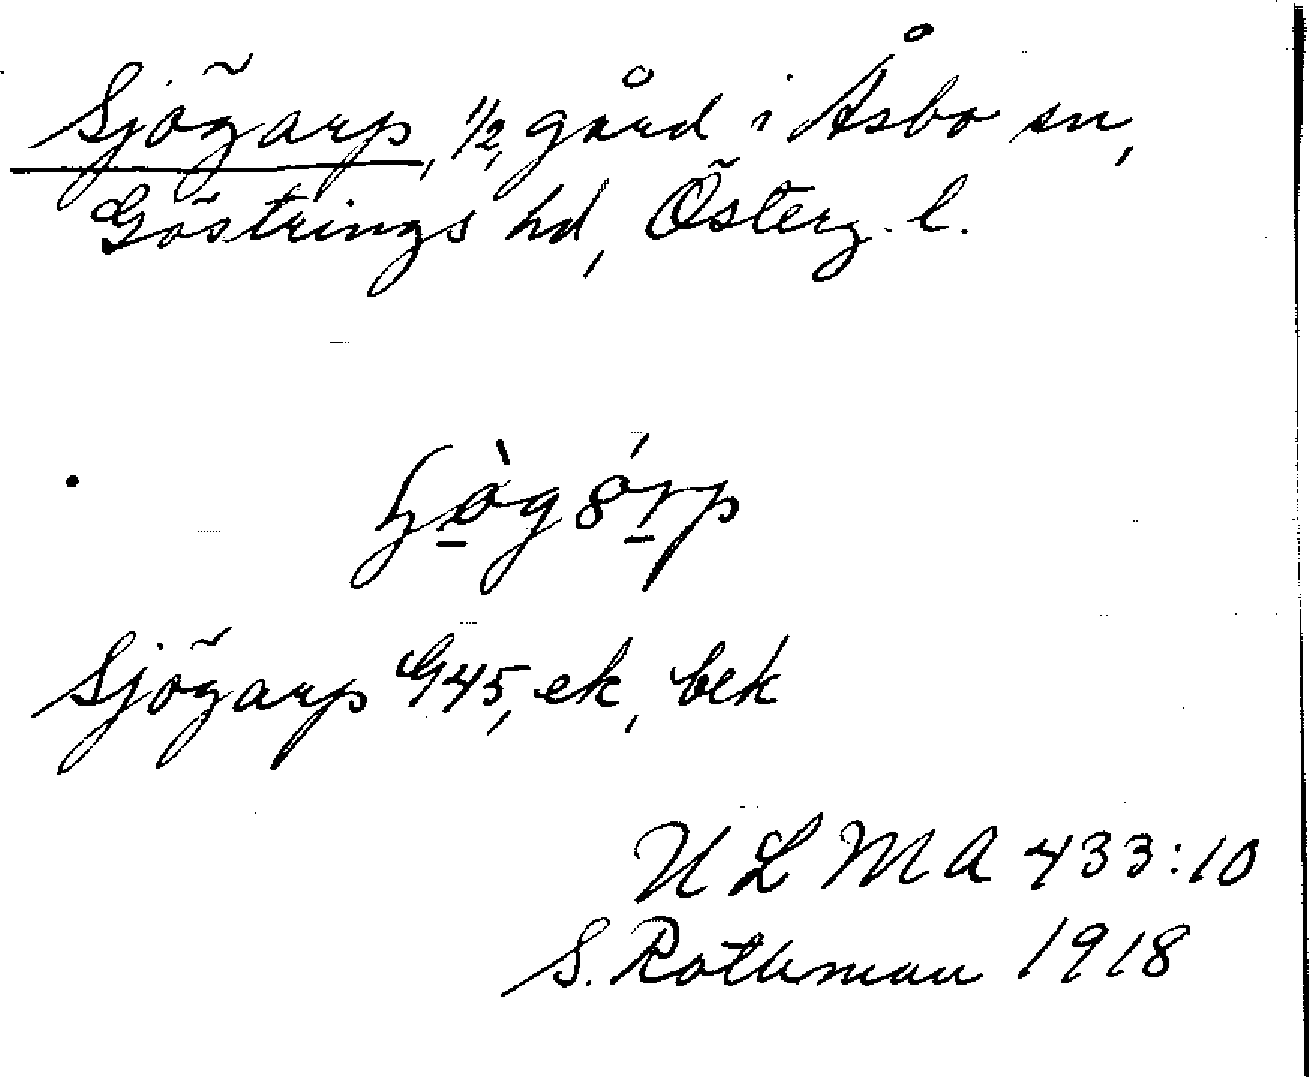 Sjögarp, 1/2, gård i Åsbo sn,
Göstrings hd, Österg. l.
Sjögarp G45, ek, bek
ULMA 433:10
S. Rothman 1918